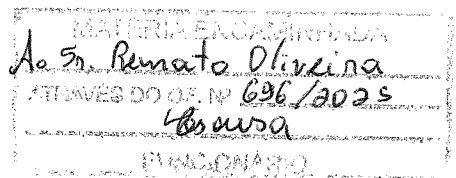 MATÉRIA ENCAMINHADA
Ao Sr. Renato Oliveira
ATRAVÉS DO OF. Nº 696/2025
Esousa
FUNCIONÁRIO